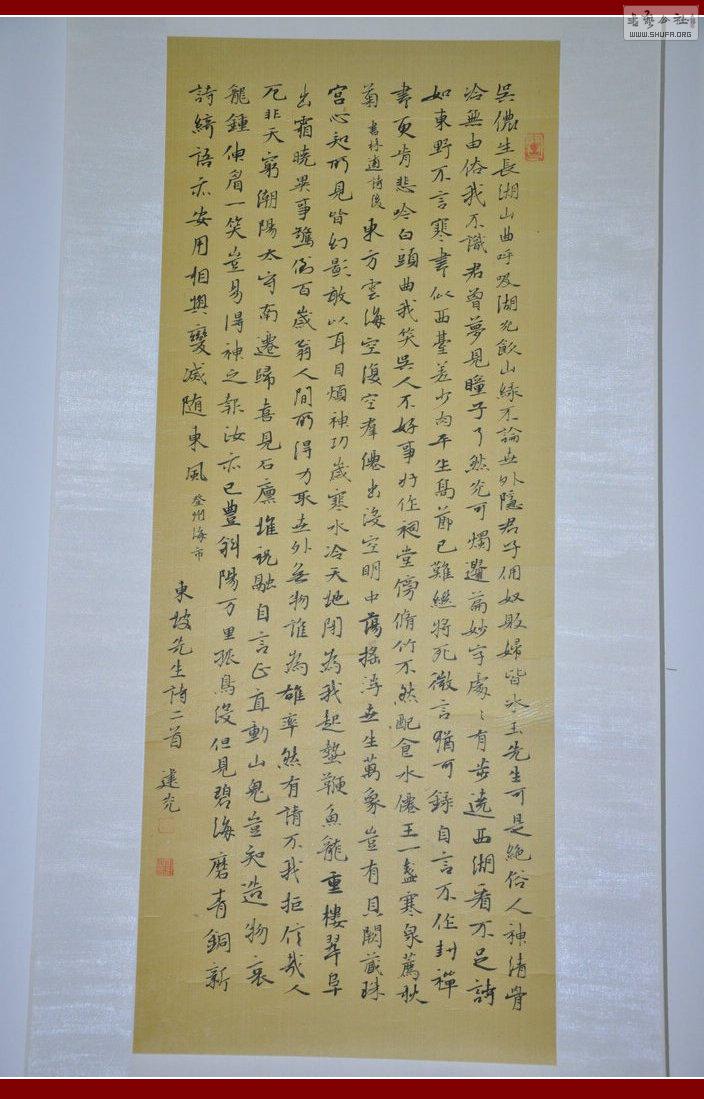 吳儂生長湖山曲呼吸湖光飲山綠不論世外隱君子傭奴販婦皆冰玉先生可是絕俗人神清骨
冷無由俗我不識君曾夢見瞳子了然光可燭遺篇妙字處々有步遶西湖看不足詩
如東野不言寒書似西臺差少肉平生高節已難繼將死微言猶可錄自言不作封禪
書更肯悲吟白頭曲我笑吳人不好事好作祠堂傍脩竹不然配食水僊王一盞寒泉薦秋
菊 書林逋詩後 東方雲海空復空羣僊出沒空明中蕩搖浮世生萬象豈有貝闕藏珠
宮心知所見皆幻影敢以耳目煩神功歲寒水冷天地閉為我起蟄鞭魚龍重樓翠阜
出霜曉異事驚倒百歲翁人間所得力取世外無物誰為雄率然有請不我拒信我人
厄非天窮潮陽太守南遷歸喜見石廩堆祝融自言正直動山鬼豈知造物哀
龍鍾伸眉一笑豈易得神之報汝亦已豐斜陽万里孤鳥沒但見碧海磨青銅新
詩綺語亦安用相與變滅随東風 登州海市
東坡先生詩二首 建光
书艺公社
WWW.SHUFA.ORG